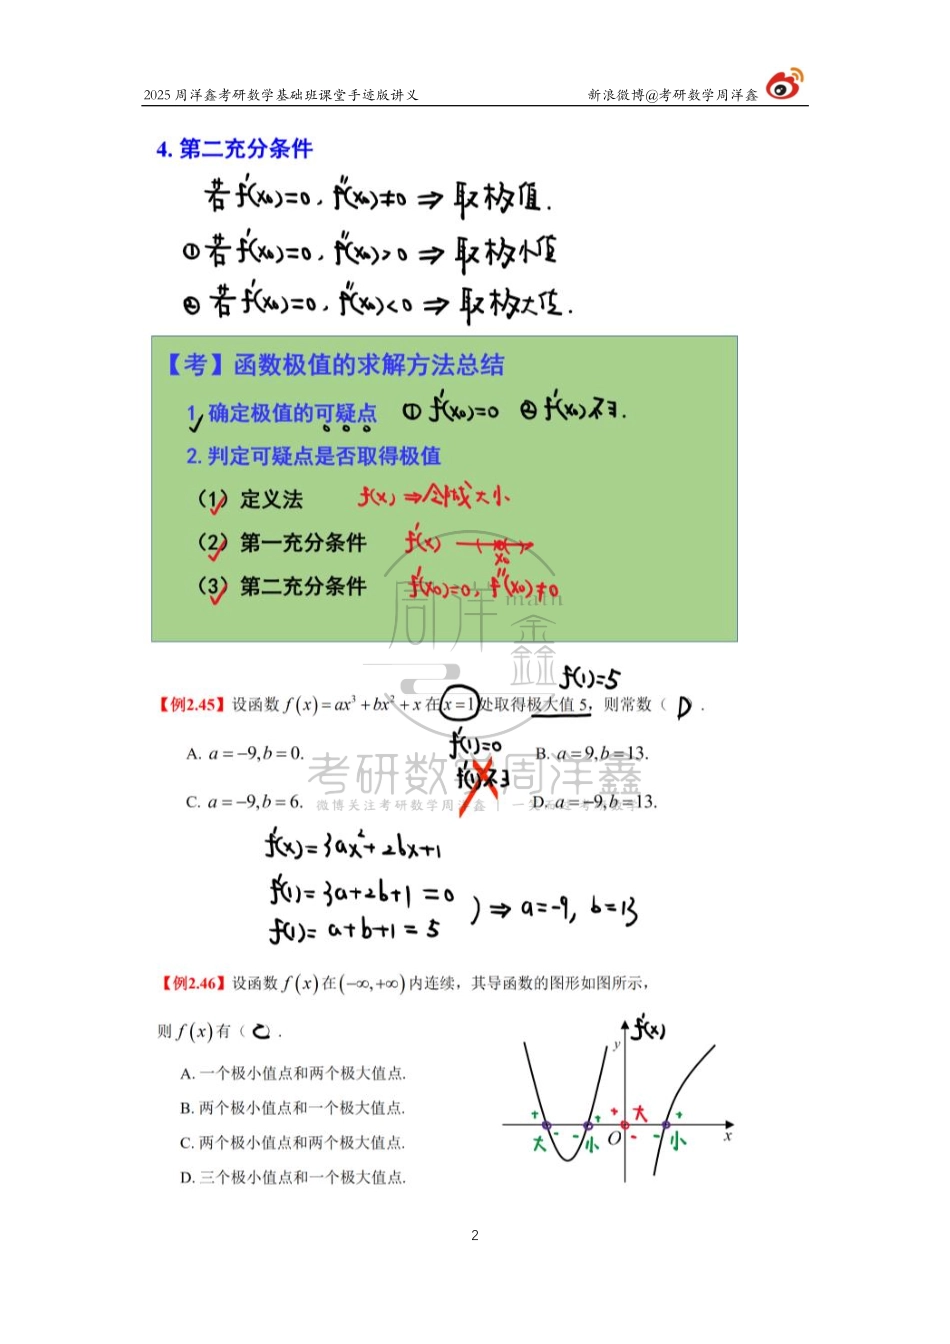 2025 周洋鑫考研数学基础班课堂手迹版讲义 新浪微博@考研数学周洋鑫
4. 第二充分条件
若 f′(x₀)=0, f″(x₀)≠0 ⇒ 取极值.
① 若 f′(x₀)=0, f″(x₀)>0 ⇒ 取极小值
② 若 f′(x₀)=0, f″(x₀)<0 ⇒ 取极大值.
【考】函数极值的求解方法总结
1. 确定极值的可疑点 ① f′(x₀)=0 ② f′(x₀)不∃.
2. 判定可疑点是否取得极值
（1）定义法 f(x) ⇒ 邻域大小
（2）第一充分条件 f′(x) x₀
（3）第二充分条件 f′(x₀)=0, f″(x₀)≠0
周洋鑫 math
f(1)=5
【例2.45】设函数 f(x)=ax³+bx²+x 在 x=1 处取得极大值 5，则常数（ D ）.
A. a=−9,b=0. f′(1)=0 B. a=9,b=13.
f′(1)不∃
C. a=−9,b=6. D. a=−9,b=13.
考研数学周洋鑫
微博关注考研数学周洋鑫 | 一笑而过考研数学
f′(x)=3ax²+2bx+1
f′(1)=3a+2b+1=0
f(1)=a+b+1=5 ) ⇒ a=-9, b=13
【例2.46】设函数 f(x) 在 (−∞,+∞) 内连续，其导函数的图形如图所示，
则 f(x) 有（ C ）.
A. 一个极小值点和两个极大值点.
B. 两个极小值点和一个极大值点.
C. 两个极小值点和两个极大值点.
D. 三个极小值点和一个极大值点.
y f′(x)
+ + + 大 +
- - - -
大 小 O 小 x
2